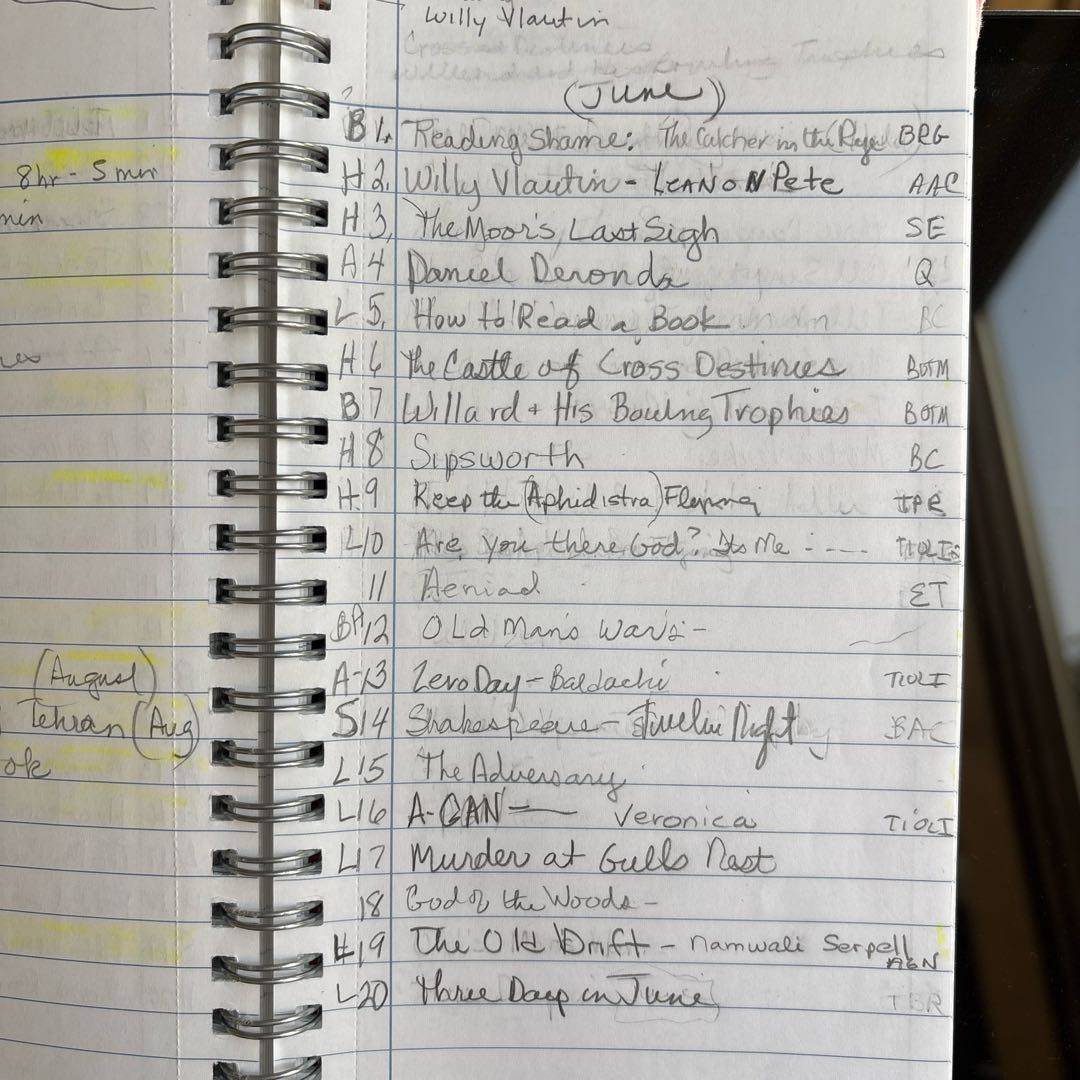 Willy Vlautin
(June)
B 1. Reading Shame: The Catcher in the (Rye) BRG
8hr - 5 min
H 2, Willy Vlautin - LEAN ON Pete AAC
min
H 3, The Moor's Last Sigh SE
A 4 Daniel Deronda 'Q'
L 5, How to Read a Book BC
H 6 The Castle of Cross Destinies BOTM
B 7 Willard + His Bowling Trophies BOTM
H 8 Sipsworth BC
H. 9 Keep the (Aphidistra) Flying
L10 Are you there God? Its Me - - - - -
11 Aeniad ET
BA 12 OLd Man's War -
(August)
A-13 Zero Day - Baldachi TIOLI
Tehran (Aug)
S14 Shakespeare - Twelve Night BAC
ok
L 15 The Adversary
L16 A-CAN — Veronica TIOLI
L17 Murder at Gulls Nest
18 God of the Woods -
L19 The Old Drift - Namwali Serpell
L20 Three Days in June TBR